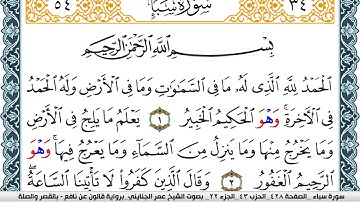 ٥٤ سورة سبإ ٣٤
بِسْمِ اللَّهِ الرَّحْمَٰنِ الرَّحِيمِ
الْحَمْدُ لِلَّهِ الَّذِي لَهُ مَا فِي السَّمَٰوَٰتِ وَمَا فِي الْأَرْضِ وَلَهُ الْحَمْدُ
فِي الْآخِرَةِ وَهْوَ الْحَكِيمُ الْخَبِيرُ ١ يَعْلَمُ مَا يَلِجُ فِي الْأَرْضِ
وَمَا يَخْرُجُ مِنْهَا وَمَا يَنزِلُ مِنَ السَّمَآءِ وَمَا يَعْرُجُ فِيهَا وَهْوَ
الرَّحِيمُ الْغَفُورُ ٢ وَقَالَ الَّذِينَ كَفَرُوا لَا تَأْتِينَا السَّاعَةُ
سورة سباء . الصفحة ٤٢٨ . الحزب ٤٣ . الجزء ٢٢ .. بصوت الشيخ عمر الجنايني . برواية قالون عن نافع - بالقصر والصلة